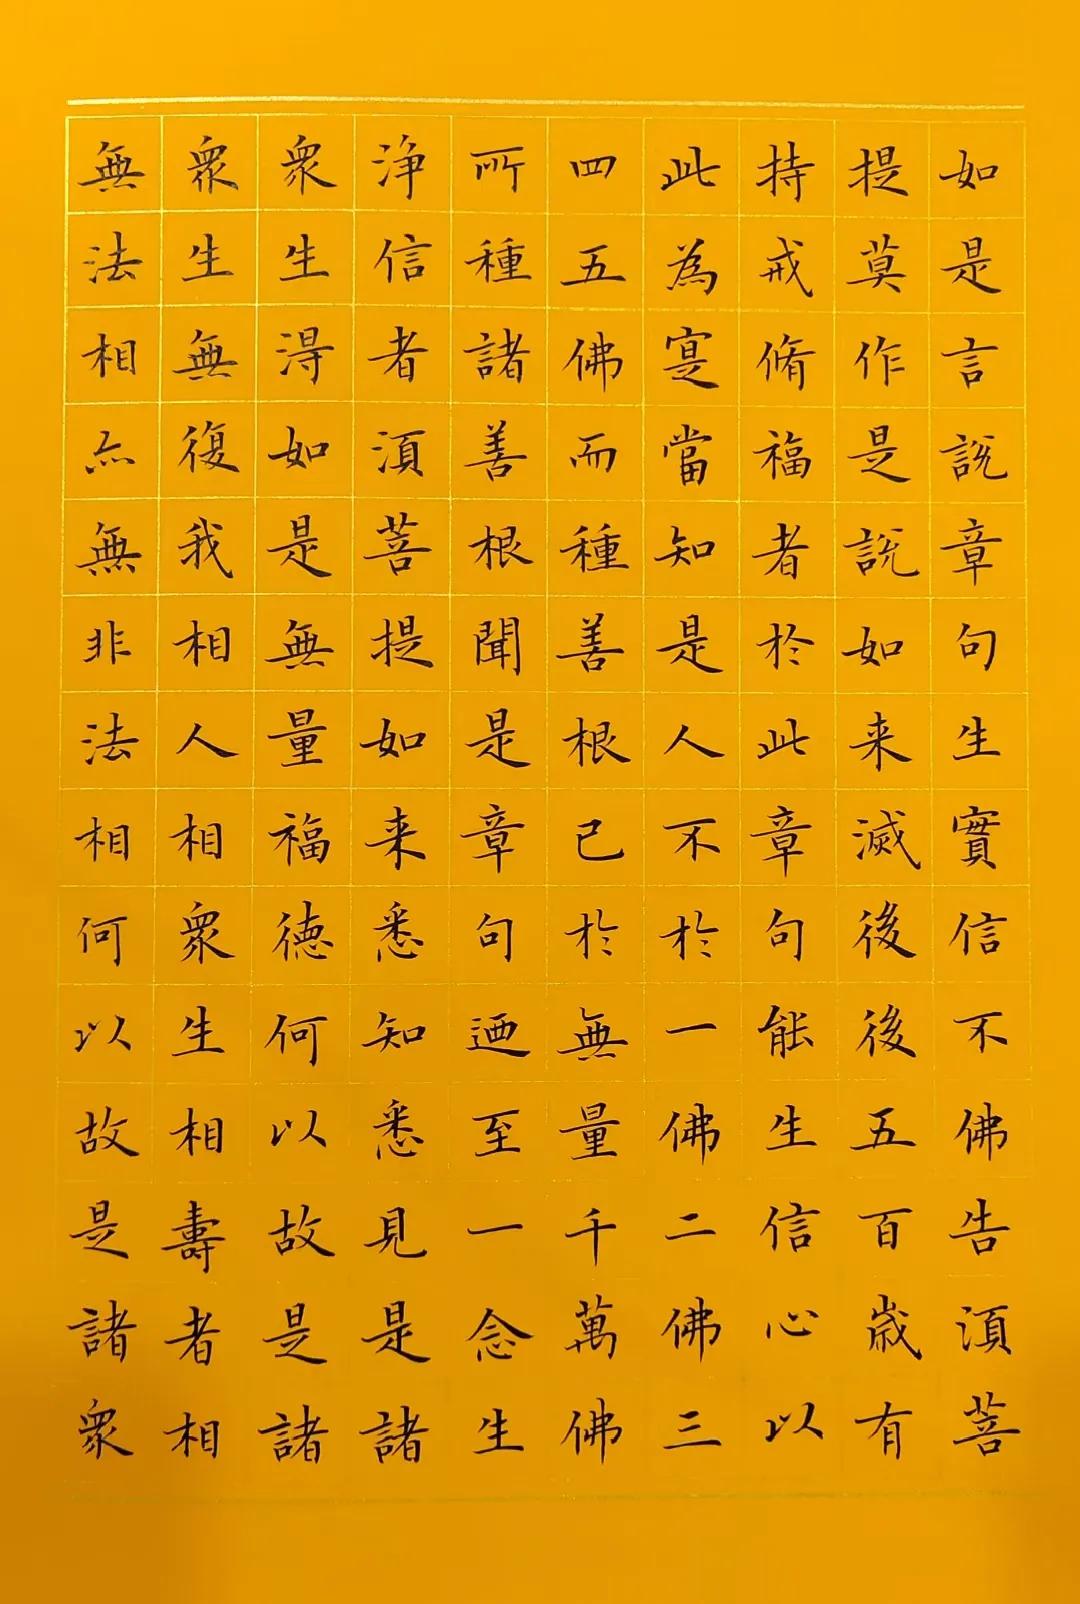 如是言說章句生實信不佛告湏菩
提莫作是說如来滅後後五百歲有
持戒脩福者於此章句能生信心以
此為寔當知是人不於一佛二佛三
四五佛而種善根已於無量千萬佛
所種諸善根聞是章句迺至一念生
浄信者湏菩提如来悉知悉見是諸
衆生淂如是無量福德何以故是諸
衆生無復我相人相衆生相壽者相
無法相亦無非法相何以故是諸衆